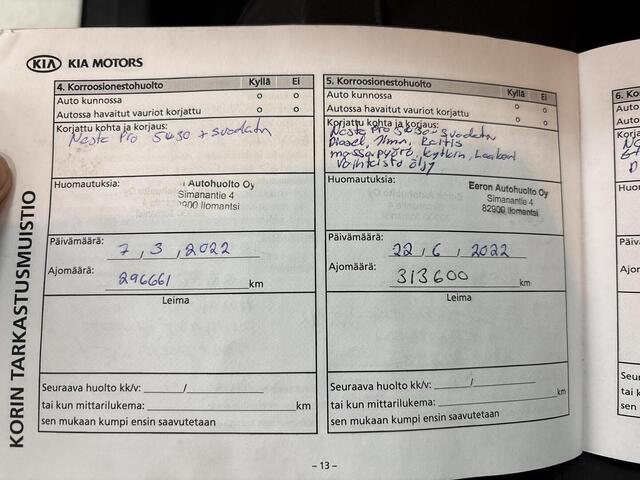 KIA KIA MOTORS
KORIN TARKASTUSMUISTIO
4. Korroosionestohuolto Kyllä Ei
Auto kunnossa o o
Autossa havaitut vauriot korjattu o o
Korjattu kohta ja korjaus:
Neste Pro 5W30 + suodatin
Huomautuksia:
Autohuolto Oy
Simanantie 4
2900 Ilomantsi
Päivämäärä: 7, 3, 2022
Ajomäärä: 296661 km
Leima
Seuraava huolto kk/v: /
tai kun mittarilukema: km
sen mukaan kumpi ensin saavutetaan
5. Korroosionestohuolto Kyllä Ei
Auto kunnossa o o
Autossa havaitut vauriot korjattu o o
Korjattu kohta ja korjaus:
Neste Pro 5W30 Suodatin
Diesel, Ilman, Raitis
massapyörä, kytkin,
Vaihteisto öljy
Huomautuksia:
Eeron Autohuolto Oy
Simanantie 4
82900 Ilomantsi
Päivämäärä: 22, 6, 2022
Ajomäärä: 313600 km
Leima
Seuraava huolto kk/v: /
tai kun mittarilukema: km
sen mukaan kumpi ensin saavutetaan
6. Ko
Auto k
Autoss
Korjatt
Huom
Päivän
Ajom
Seur
tai k
sen
– 13 –